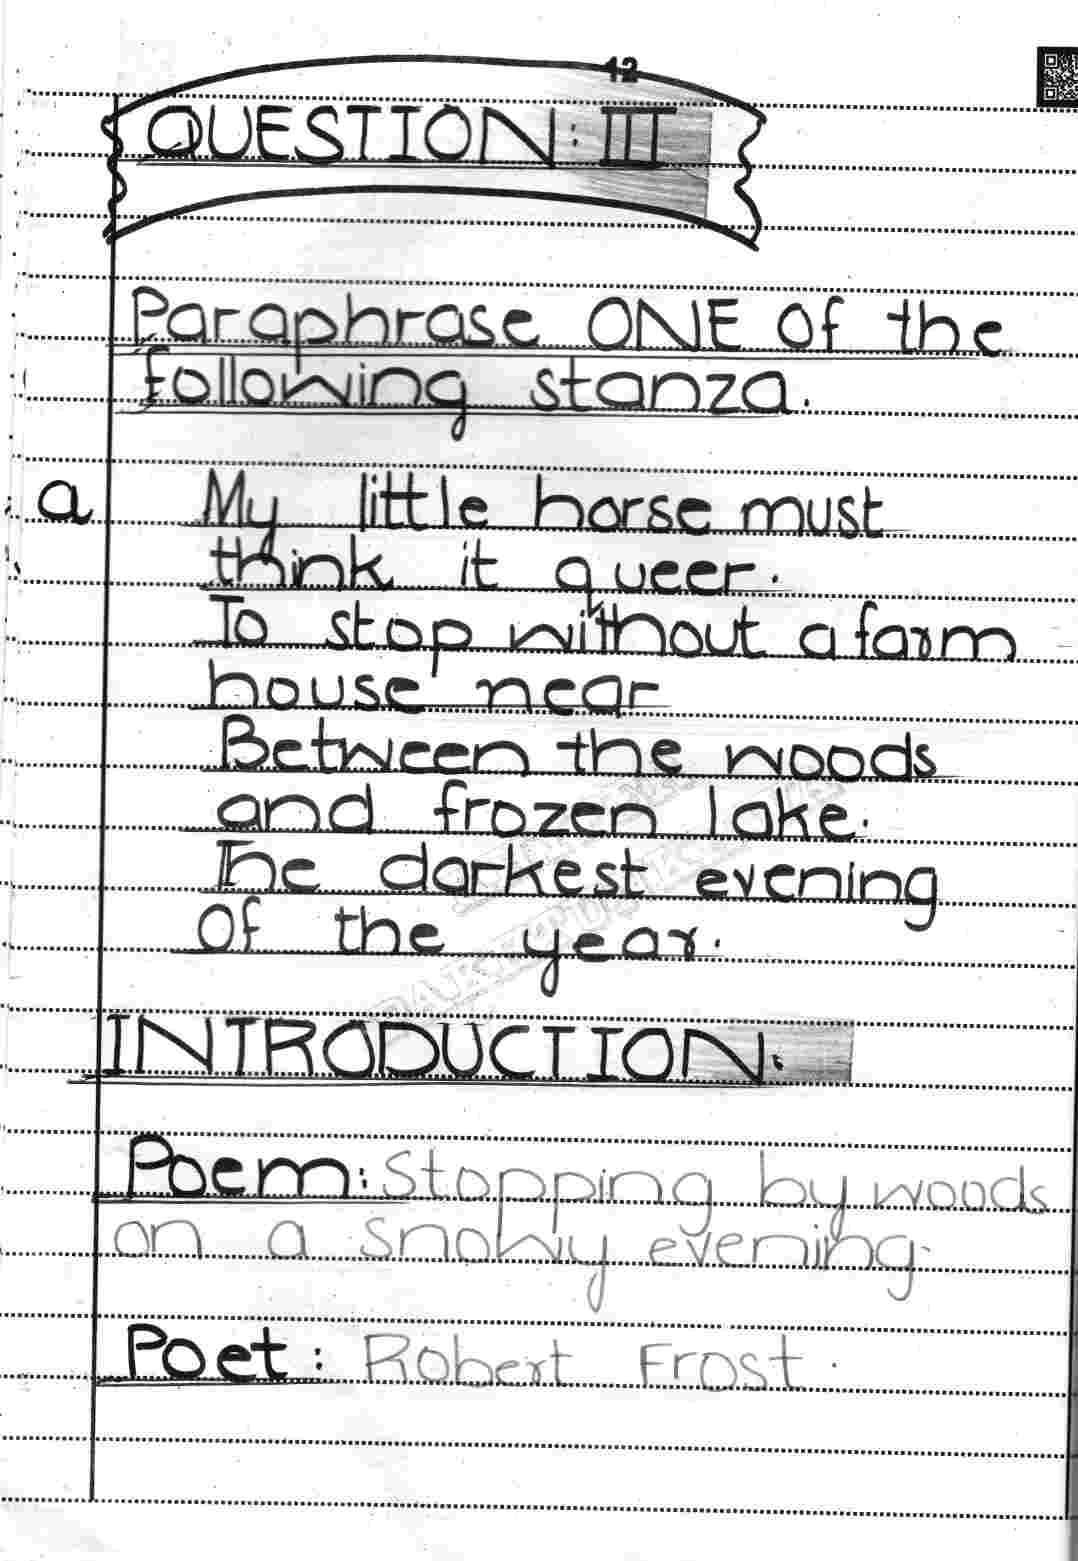 12
QUESTION: III
Paraphrase ONE of the
following stanza.
a My little horse must
think it queer.
To stop without a farm
house near
Between the woods
and frozen lake.
The darkest evening
of the year.
INTRODUCTION.
Poem: Stopping by woods
on a snowy evening.
Poet: Robert Frost.